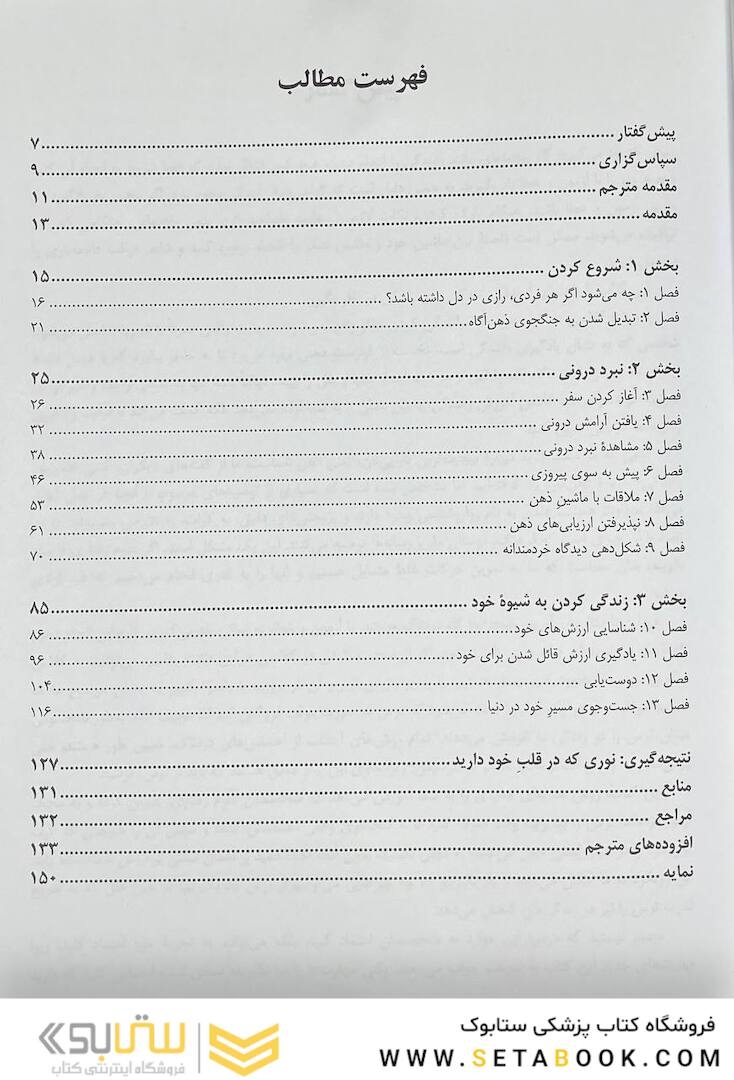 فهرست مطالب
پیش‌گفتار ........ ۷
سپاس‌گزاری ........ ۹
مقدمه مترجم ........ ۱۱
مقدمه ........ ۱۳
بخش ۱: شروع کردن ........ ۱۵
فصل ۱: چه می‌شود اگر هر فردی، رازی در دل داشته باشد؟ ........ ۱۶
فصل ۲: تبدیل شدن به جنگجوی ذهن‌آگاه ........ ۲۱
بخش ۲: نبرد درونی ........ ۲۵
فصل ۳: آغاز کردن سفر ........ ۲۶
فصل ۴: یافتن آرامش درونی ........ ۳۲
فصل ۵: مشاهدهٔ نبرد درونی ........ ۳۸
فصل ۶: پیش به سوی پیروزی ........ ۴۶
فصل ۷: ملاقات با ماشینِ ذهن ........ ۵۳
فصل ۸: نپذیرفتن ارزیابی‌های ذهن ........ ۶۱
فصل ۹: شکل‌دهی دیدگاه خردمندانه ........ ۷۰
بخش ۳: زندگی کردن به شیوهٔ خود ........ ۸۵
فصل ۱۰: شناسایی ارزش‌های خود ........ ۸۶
فصل ۱۱: یادگیری ارزش قائل شدن برای خود ........ ۹۶
فصل ۱۲: دوست‌یابی ........ ۱۰۴
فصل ۱۳: جست‌وجوی مسیرِ خود در دنیا ........ ۱۱۶
نتیجه‌گیری: نوری که در قلبِ خود دارید ........ ۱۲۷
منابع ........ ۱۳۱
مراجع ........ ۱۳۲
افزوده‌های مترجم ........ ۱۳۳
نمایه ........ ۱۵۰
فروشگاه کتاب پزشکی ستابوک
WWW.SETABOOK.COM
ستابوک
فروشگاه اینترنتی کتاب